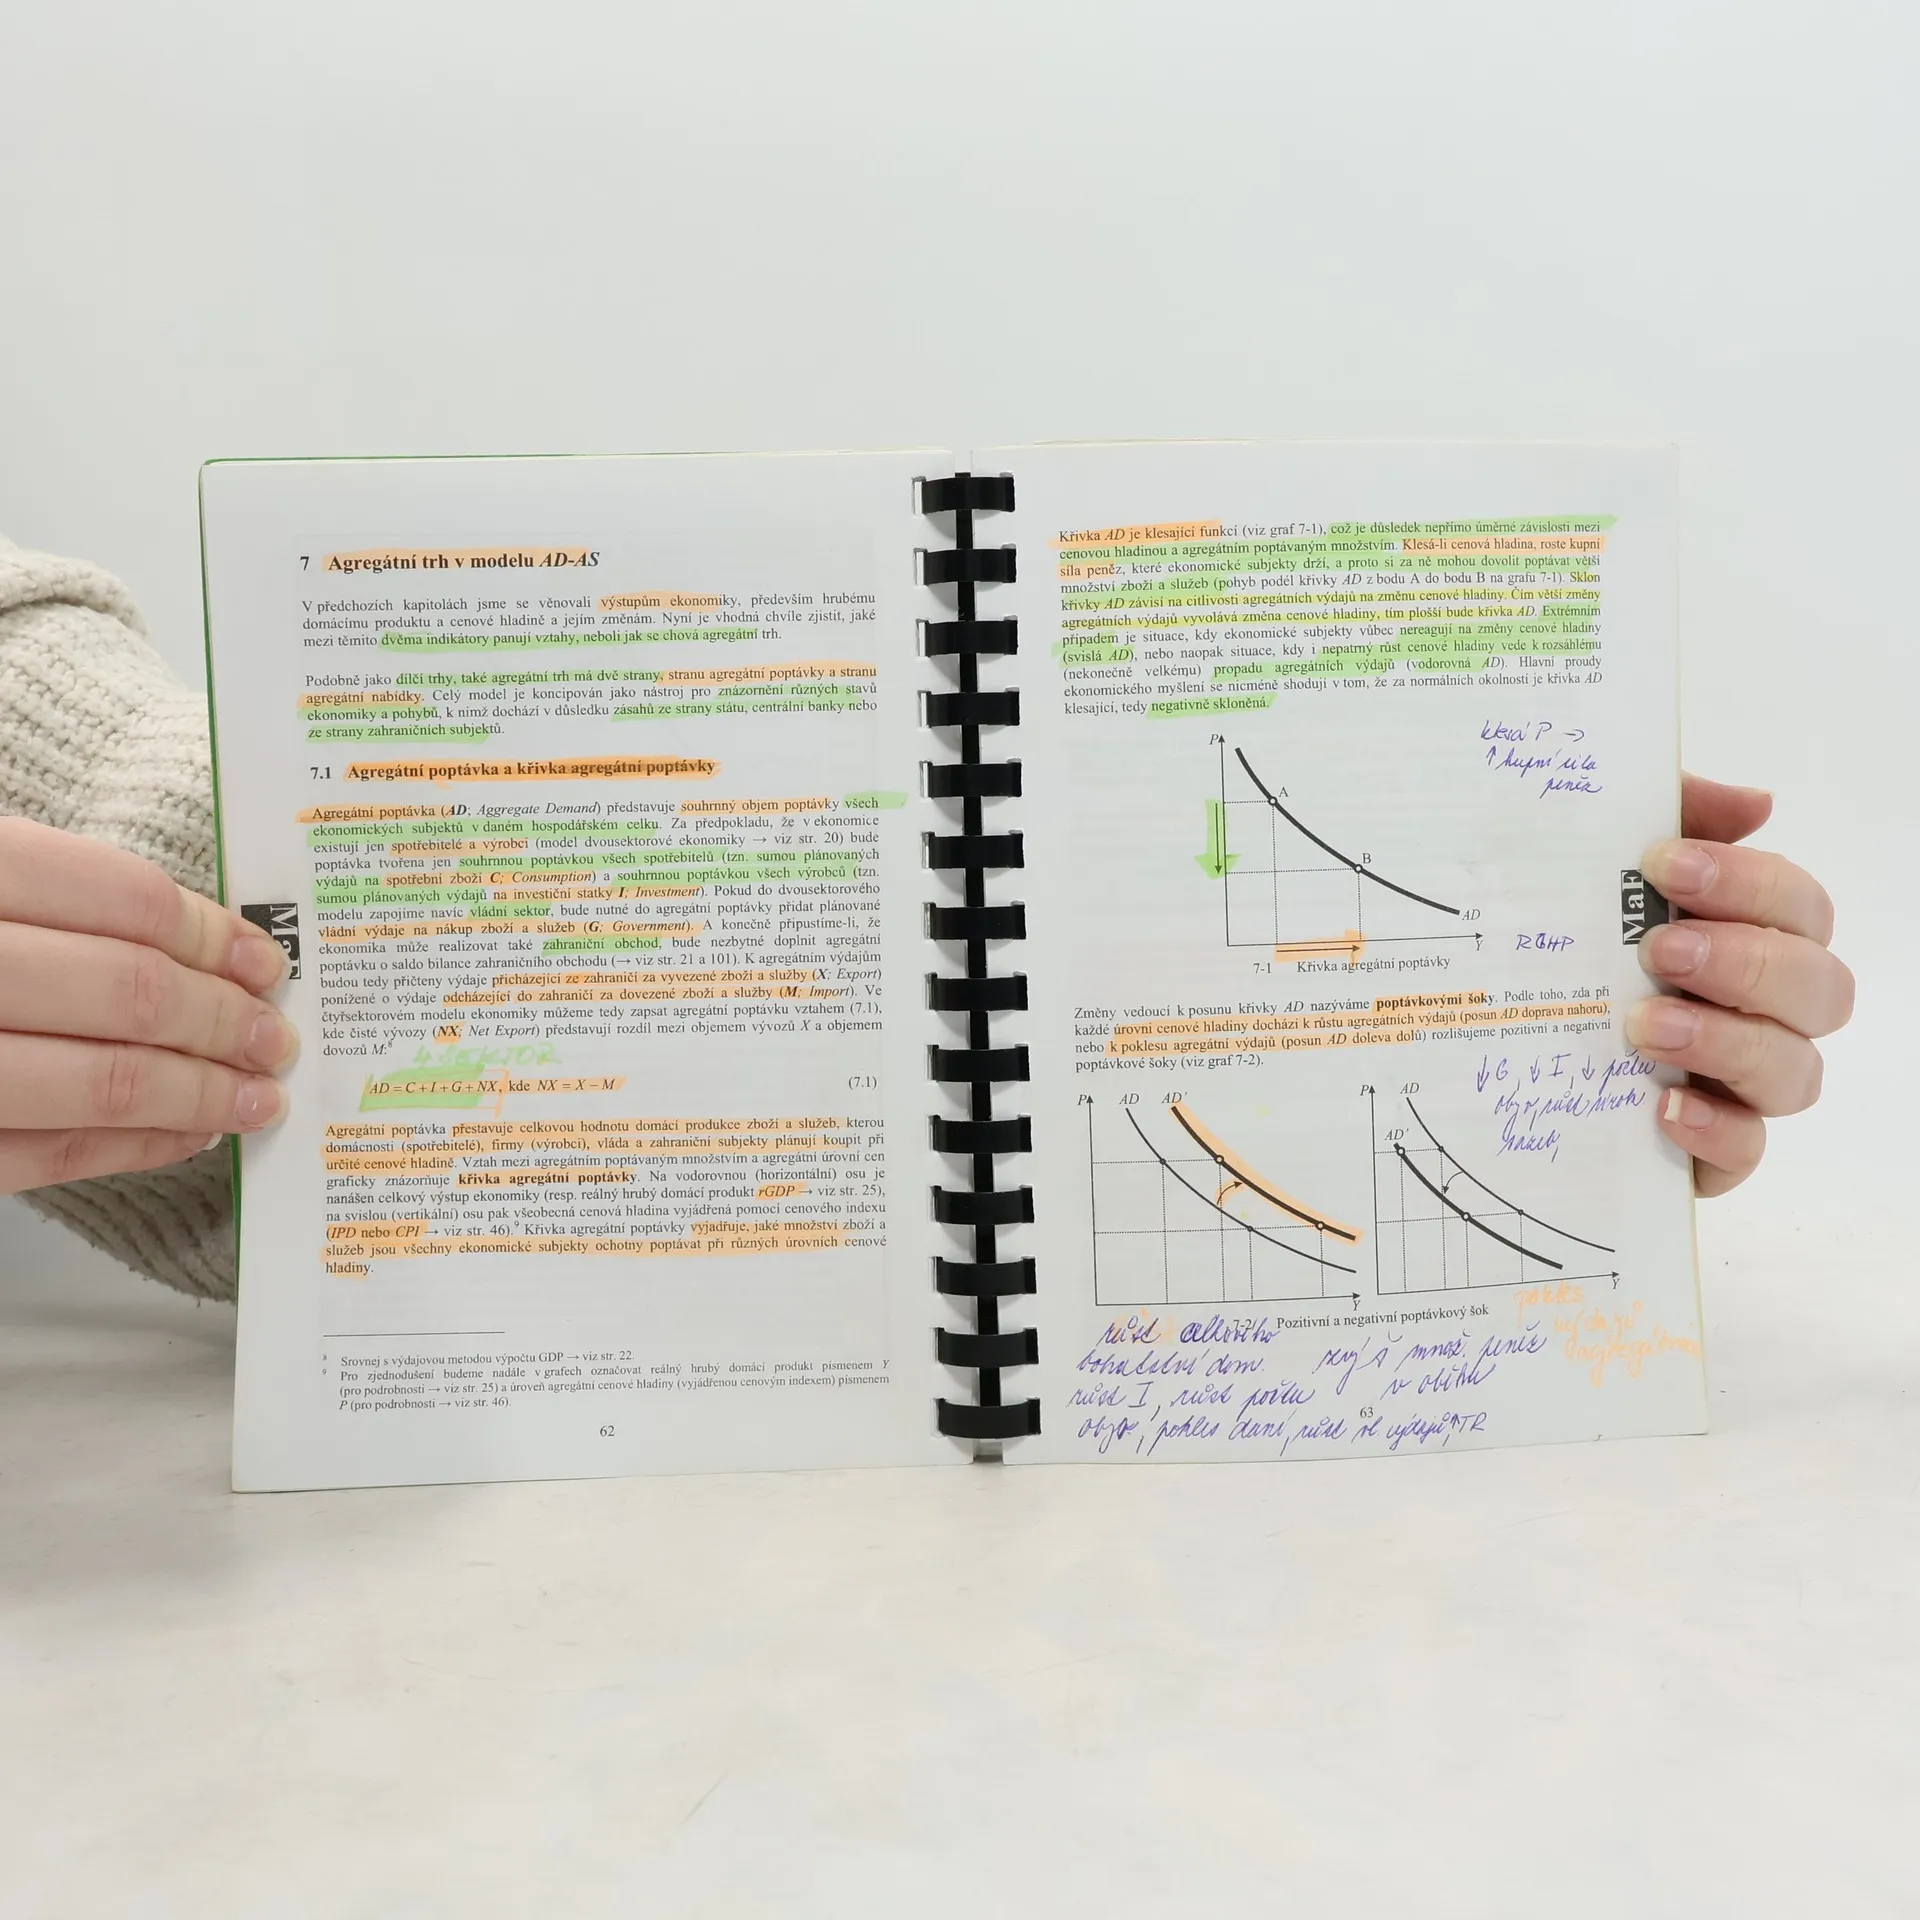 7 Agregátní trh v modelu AD-AS
V předchozích kapitolách jsme se věnovali výstupům ekonomiky, především hrubému
domácímu produktu a cenové hladině a jejím změnám. Nyní je vhodná chvíle zjistit, jaké
mezi těmito dvěma indikátory panují vztahy, neboli jak se chová agregátní trh.
Podobně jako dílčí trhy, také agregátní trh má dvě strany, stranu agregátní poptávky a stranu
agregátní nabídky. Celý model je koncipován jako nástroj pro znázornění různých stavů
ekonomiky a pohybů, k nimž dochází v důsledku zásahů ze strany státu, centrální banky nebo
ze strany zahraničních subjektů.
7.1 Agregátní poptávka a křivka agregátní poptávky
Agregátní poptávka (AD; Aggregate Demand) představuje souhrnný objem poptávky všech
ekonomických subjektů v daném hospodářském celku. Za předpokladu, že v ekonomice
existují jen spotřebitelé a výrobci (model dvousektorové ekonomiky → viz str. 20) bude
poptávka tvořena jen souhrnnou poptávkou všech spotřebitelů (tzn. sumou plánovaných
výdajů na spotřební zboží C; Consumption) a souhrnnou poptávkou všech výrobců (tzn.
sumou plánovaných výdajů na investiční statky I; Investment). Pokud do dvousektorového
modelu zapojíme navíc vládní sektor, bude nutné do agregátní poptávky přidat plánované
vládní výdaje na nákup zboží a služeb (G; Government). A konečně připustíme-li, že
ekonomika může realizovat také zahraniční obchod, bude nezbytné doplnit agregátní
poptávku o saldo bilance zahraničního obchodu (→ viz str. 21 a 101). K agregátním výdajům
budou tedy přičteny výdaje přicházející ze zahraničí za vyvezené zboží a služby (X; Export)
ponížené o výdaje odcházející do zahraničí za dovezené zboží a služby (M; Import). Ve
čtyřsektorovém modelu ekonomiky můžeme tedy zapsat agregátní poptávku vztahem (7.1),
kde čisté vývozy (NX; Net Export) představují rozdíl mezi objemem vývozů X a objemem
dovozů M:⁸
4 SEKTOR
AD = C + I + G + NX, kde NX = X – M (7.1)
Agregátní poptávka přestavuje celkovou hodnotu domácí produkce zboží a služeb, kterou
domácnosti (spotřebitelé), firmy (výrobci), vláda a zahraniční subjekty plánují koupit při
určité cenové hladině. Vztah mezi agregátním poptávaným množstvím a agregátní úrovní cen
graficky znázorňuje křivka agregátní poptávky. Na vodorovnou (horizontální) osu je
nanášen celkový výstup ekonomiky (resp. reálný hrubý domácí produkt rGDP → viz str. 25),
na svislou (vertikální) osu pak všeobecná cenová hladina vyjádřená pomocí cenového indexu
(IPD nebo CPI → viz str. 46).⁹ Křivka agregátní poptávky vyjadřuje, jaké množství zboží a
služeb jsou všechny ekonomické subjekty ochotny poptávat při různých úrovních cenové
hladiny.
⁸ Srovnej s výdajovou metodou výpočtu GDP → viz str. 22.
⁹ Pro zjednodušení budeme nadále v grafech označovat reálný hrubý domácí produkt písmenem Y
(pro podrobnosti → viz str. 25) a úroveň agregátní cenové hladiny (vyjádřenou cenovým indexem) písmenem
P (pro podrobnosti → viz str. 46).
62
Křivka AD je klesající funkcí (viz graf 7-1), což je důsledek nepřímo úměrné závislosti mezi
cenovou hladinou a agregátním poptávaným množstvím. Klesá-li cenová hladina, roste kupní
síla peněz, které ekonomické subjekty drží, a proto si za ně mohou dovolit poptávat větší
množství zboží a služeb (pohyb podél křivky AD z bodu A do bodu B na grafu 7-1). Sklon
křivky AD závisí na citlivosti agregátních výdajů na změnu cenové hladiny. Čím větší změny
agregátních výdajů vyvolává změna cenové hladiny, tím plošší bude křivka AD. Extrémním
případem je situace, kdy ekonomické subjekty vůbec nereagují na změny cenové hladiny
(svislá AD), nebo naopak situace, kdy i nepatrný růst cenové hladiny vede k rozsáhlému
(nekonečně velkému) propadu agregátních výdajů (vodorovná AD). Hlavní proudy
ekonomického myšlení se nicméně shodují v tom, že za normálních okolností je křivka AD
klesající, tedy negativně skloněná.
klesá P →
↑ kupní síla
peněz
P
A
B
AD
Y
RGHP
7-1 Křivka agregátní poptávky
MaE
Změny vedoucí k posunu křivky AD nazýváme poptávkovými šoky. Podle toho, zda při
každé úrovni cenové hladiny dochází k růstu agregátních výdajů (posun AD doprava nahoru),
nebo k poklesu agregátní výdajů (posun AD doleva dolů) rozlišujeme pozitivní a negativní
poptávkové šoky (viz graf 7-2).
↓G, ↓I, ↓ počtu
obyv, růst úrok.
sazeb,
P AD AD'
Y
P AD
AD'
Y
7-2 Pozitivní a negativní poptávkový šok
pokles
výdajů
růst celkového
bohatství dom. zvýš množ. peněz
růst I, růst počtu v oběhu
obyv, pokles daní, růst vl. výdajů, ↑TR
63